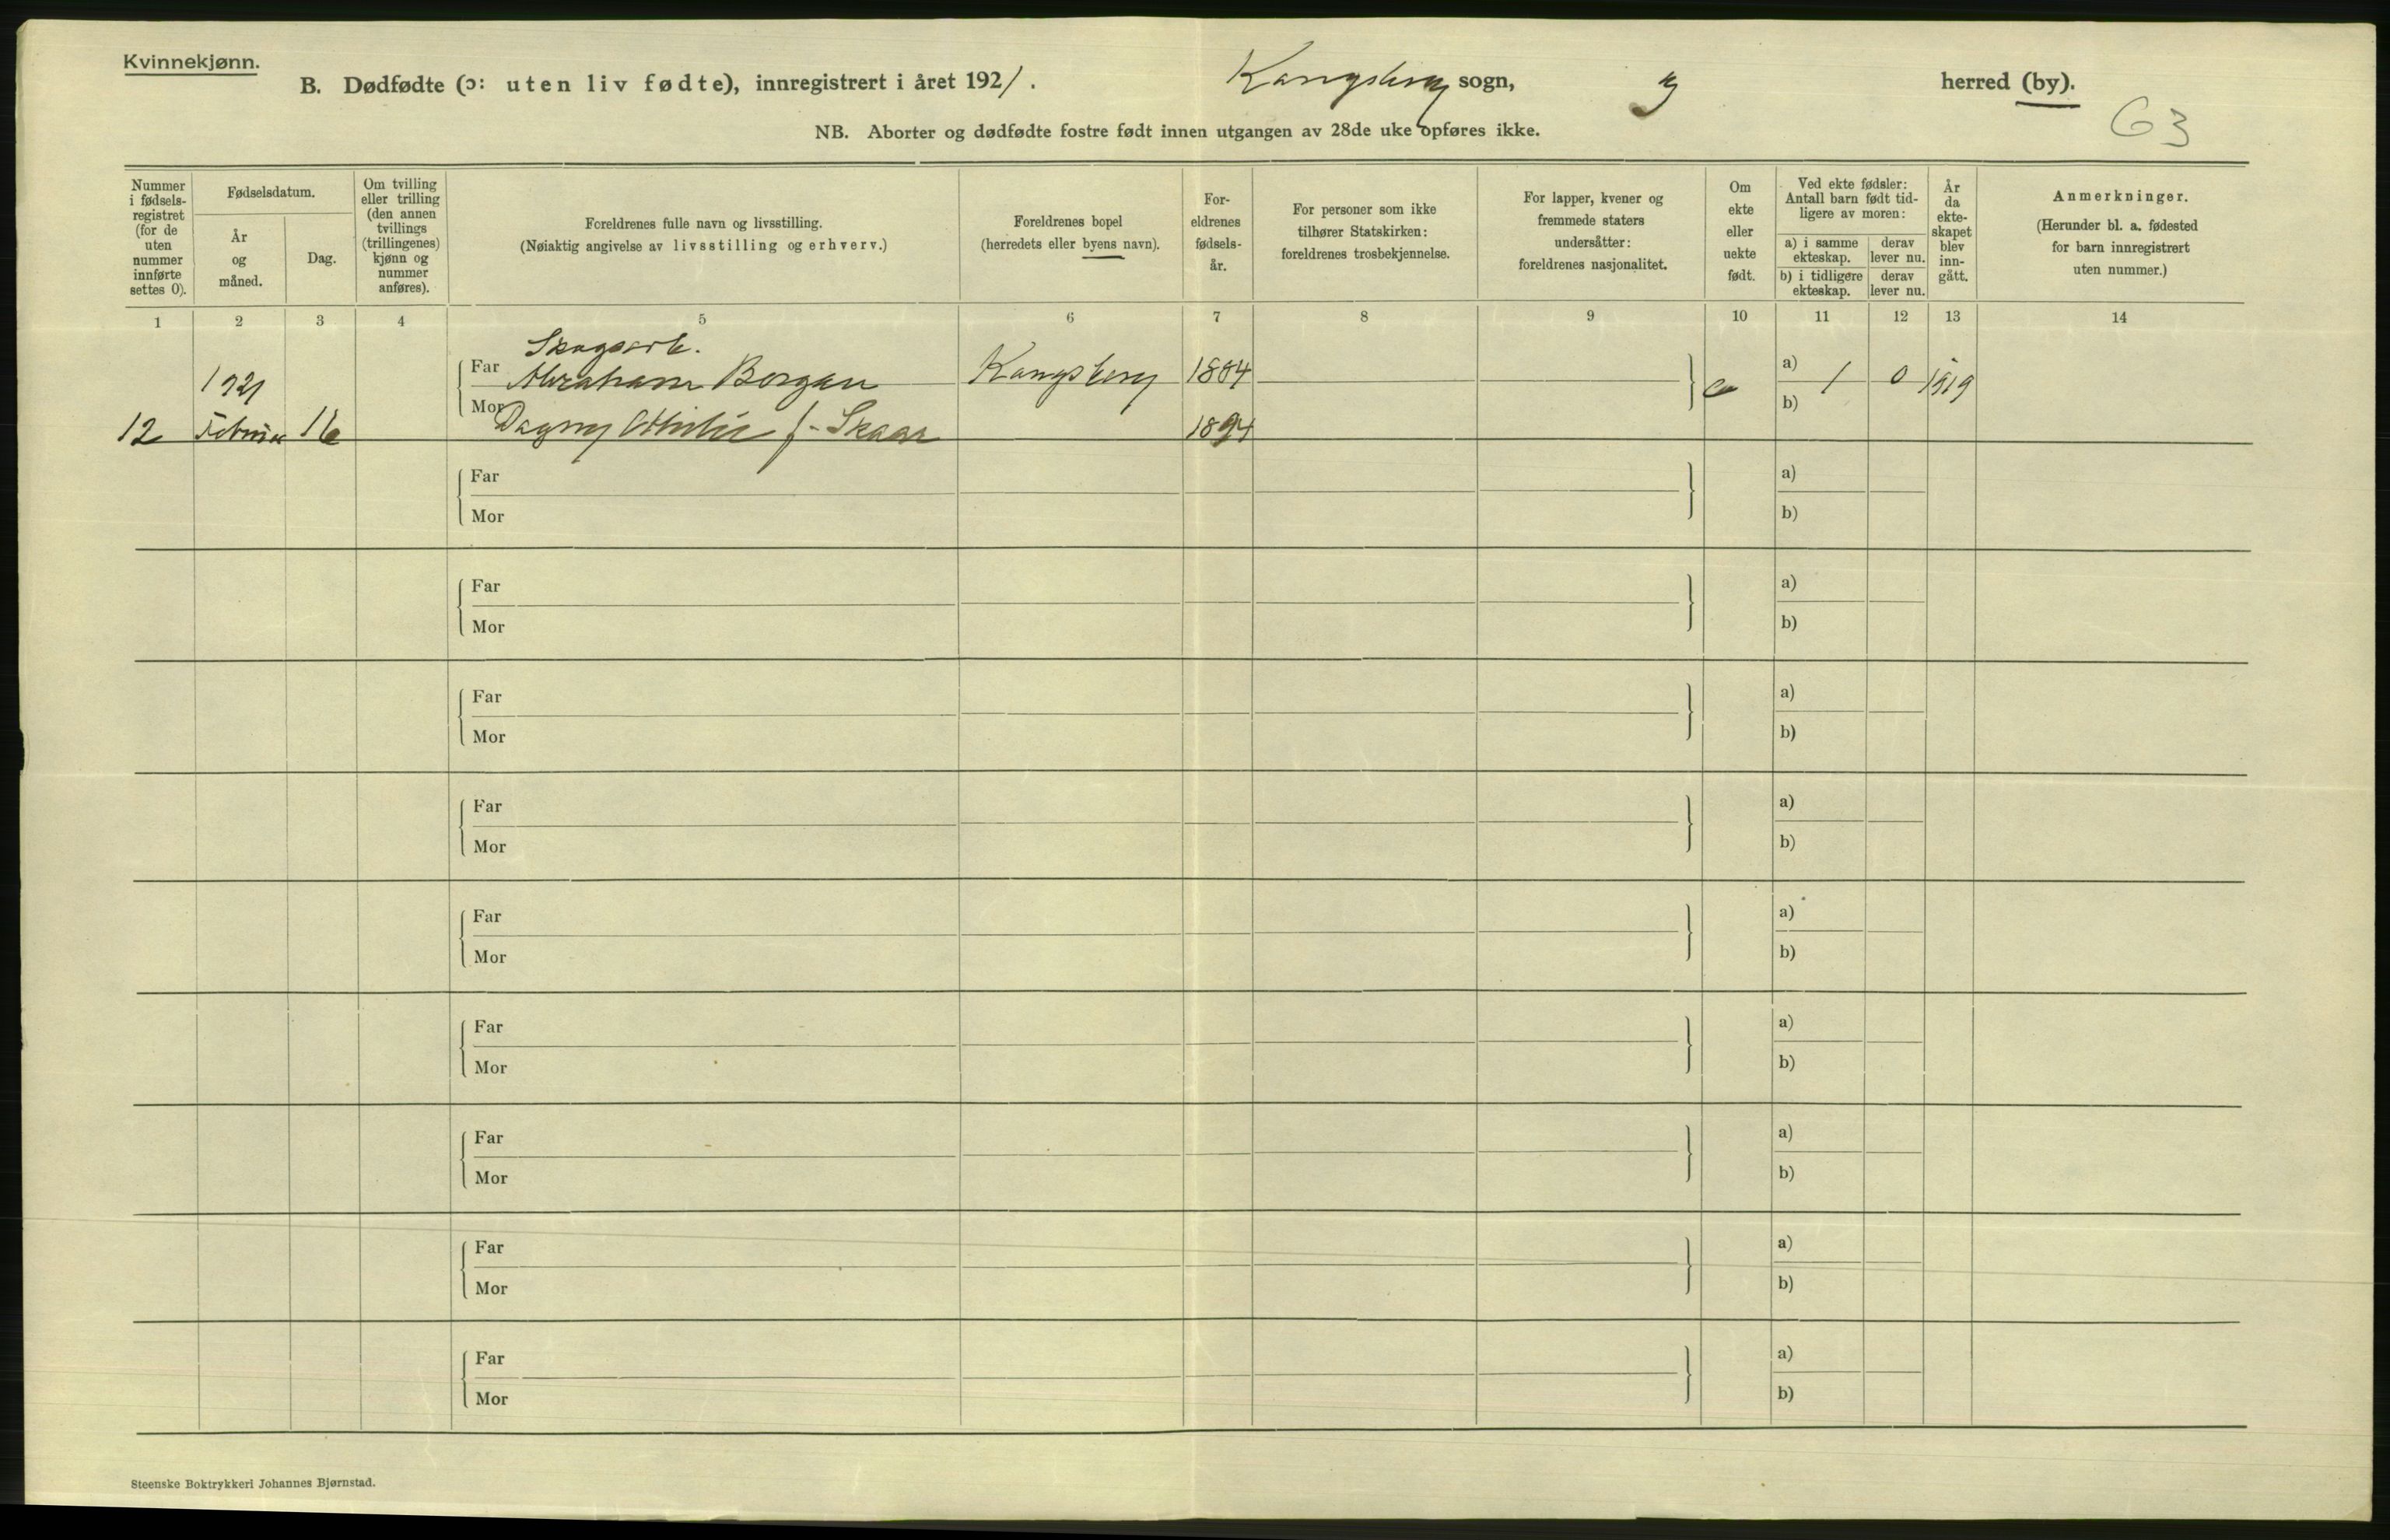 Kvinnekjønn.
B. Dødfødte (ɔ: uten liv fødte), innregistrert i året 1921. Kongsberg sogn, herred (by).
63
NB. Aborter og dødfødte fostre født innen utgangen av 28de uke opføres ikke.
Nummer i fødsels-registret (for de uten nummer innførte settes 0).
Fødselsdatum.
År og måned.
Dag.
Om tvilling eller trilling (den annen tvillings (trillingenes) kjønn og nummer anføres).
Foreldrenes fulle navn og livsstilling.
(Nøiaktig angivelse av livsstilling og erhverv.)
Foreldrenes bopel
(herredets eller byens navn).
For-eldrenes fødsels-år.
For personer som ikke tilhører Statskirken: foreldrenes trosbekjennelse.
For lapper, kvener og fremmede staters undersåtter: foreldrenes nasjonalitet.
Om ekte eller uekte født.
Ved ekte fødsler: Antall barn født tid-ligere av moren:
a) i samme ekteskap.
derav lever nu.
b) i tidligere ekteskap.
derav lever nu.
År da ekte-skapet blev inn-gått.
Anmerkninger.
(Herunder bl. a. fødested for barn innregistrert uten nummer.)
1 2 3 4 5 6 7 8 9 10 11 12 13 14
Skogsarb.
1921 Far Abraham Borgan Kongsberg 1884 e a) 1 0 1919
Mor b)
12 Februar 16 Dagny Othilie f. Skaar 1894
Far a)
Mor b)
Far a)
Mor b)
Far a)
Mor b)
Far a)
Mor b)
Far a)
Mor b)
Far a)
Mor b)
Far a)
Mor b)
Far a)
Mor b)
Far a)
Mor b)
Steenske Boktrykkeri Johannes Bjørnstad.